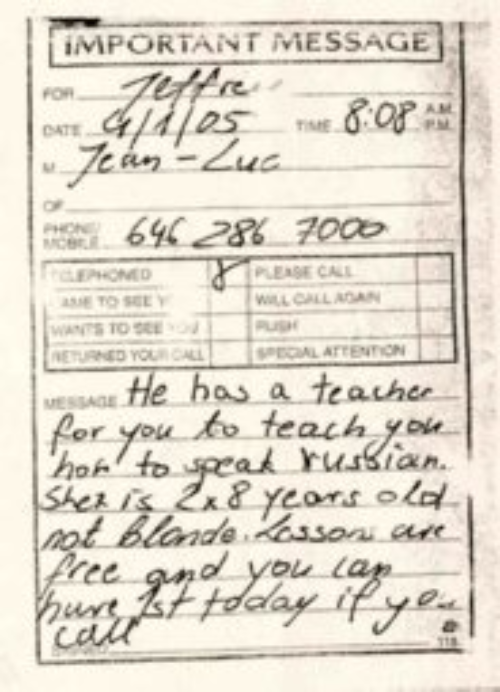 IMPORTANT MESSAGE
FOR Jeffre
DATE 4/1/05 TIME 8:08 A.M. P.M.
M Jean-Luc
OF
PHONE/ MOBILE 646 286 7000
TELEPHONED PLEASE CALL
CAME TO SEE YOU WILL CALL AGAIN
WANTS TO SEE YOU RUSH
RETURNED YOUR CALL SPECIAL ATTENTION
MESSAGE He has a teacher
for you to teach you
how to speak russian.
She is 2x8 years old
not blonde. Lessons are
free and you can
have 1st today if you
call